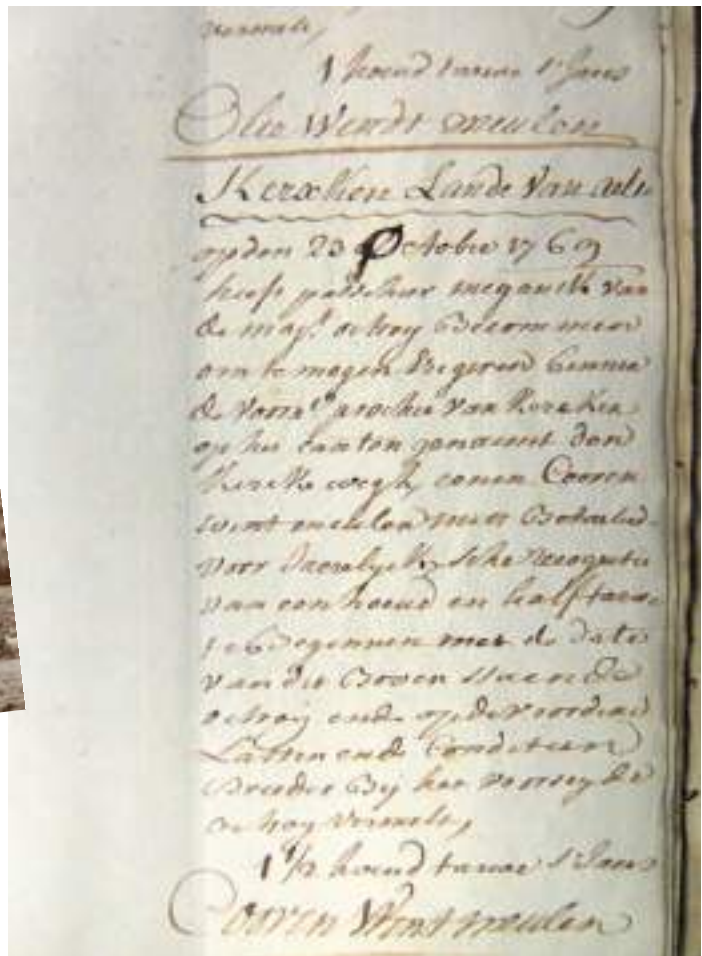 vermelt,
1 hoend tarwe s'Jaers
Olie Windt meulen
Kerxken Lande van aelst
op den 23 October 1769
heeft petrus meganck van
de maj.t octroy Becommen
om te mogen Erigeren binnen
de voorn.de prochie van Kerxken
op het canton genaemt den
Kerckwegh, eenen Cooren
wint meulen mits Betaelende
voor Jaerelyckxsche recognitie
van een hoend en half tarwe
te Beginnen met de date
van dit Boven staende
octroy ende op de voordere
Lasten ende Conditien
Breeder By het voorseyde
octroy vermelt,
1 1/2 hoend tarwe s'Jaers
Cooren Wint meulen